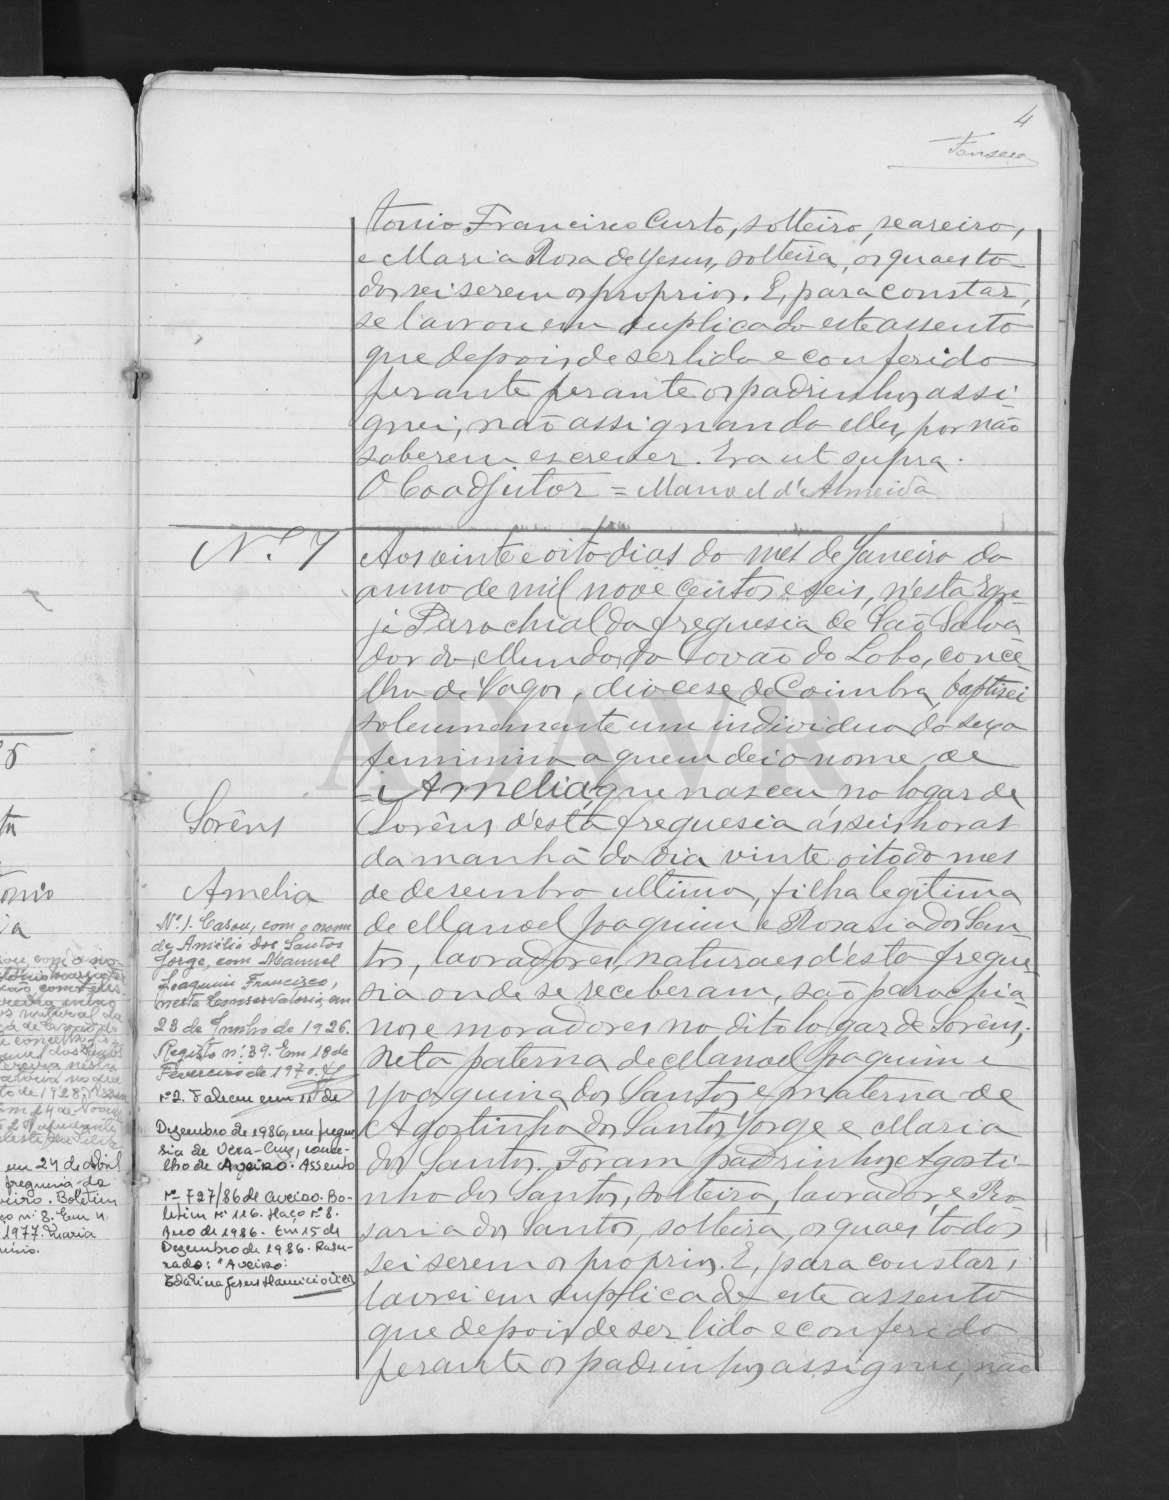 4
Fonseca
tonio Francisco Curto, solteiro, seareiro,
e Maria Rosa de Jesus, solteira, os quaes to-
dos sei serem os proprios. E, para constar,
se lavrou em duplicado este assento
que depois de ser lido e conferido
perante perante os padrinhos assi-
gnei, não assignando elles, por não
saberem escrever. Era ut supra.
O Coadjutor = Manoel d'Almeida
N.º 7
Aos vinte e oito dias do mês de Janeiro do
anno de mil nove centos e seis, n'esta Egre-
ja Parochial da freguesia de São Salva
dor do Mundo, do Covão do Lobo, conce-
lho de Vagos, diocese de Coimbra, baptisei
solemnemente um individuo do sexo
feminino a quem dei o nome de
= Amelia, que nasceu no logar de
Sorêns d'esta freguesia ás seis horas
da manhã do dia vinte oito do mes
de desembro ultimo, filha legitima
de Manoel Joaquim e Rosaria dos San-
tos, lavradores, naturaes d'esta fregue-
sia onde se receberam, são parochia-
nos e moradores no dito logar de Sorêns,
neta paterna de Manoel Joaquim e
Joaquina dos Santos e materna de
Agostinho dos Santos Jorge e Maria
dos Santos. Foram padrinhos Agosti-
nho dos Santos, solteiro, lavrador, e Ro-
saria dos Santos, solteira, os quaes todos
sei serem os proprios. E, para constar,
lavrei em duplicado este assento
que depois de ser lido e conferido
perante os padrinhos assignei, não
Sorêns
Amelia
Nº 1. Casou, com o nome
de Amélia dos Santos
Jorge, com Manuel
Joaquim Francisco,
nesta Conservatoria, em
23 de Junho de 1926.
Registo nº 39. Em 18 de
Fevereiro de 1970.
Nº 2. Faleceu em 11 de
Dezembro de 1986, na fregue-
sia de Vera-Cruz, conce-
lho de Aveiro. Assento
Nº 727/86 de Aveiro. Bo-
letim Nº 116. Maço Nº 8.
Ano de 1986. Em 15 de
Dezembro de 1986. Rasu-
rado: "Aveiro:
em 24 de Abril
freguesia da
Aveiro. Boletim
nº 8. Em 4
1977. Maria
ADAVR